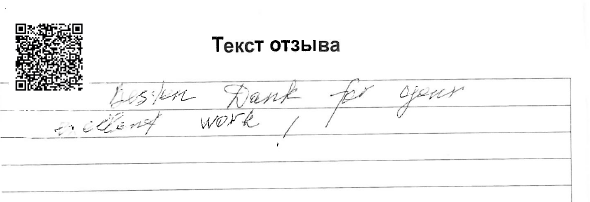 Текст отзыва
Besten Dank for your
exellent work !